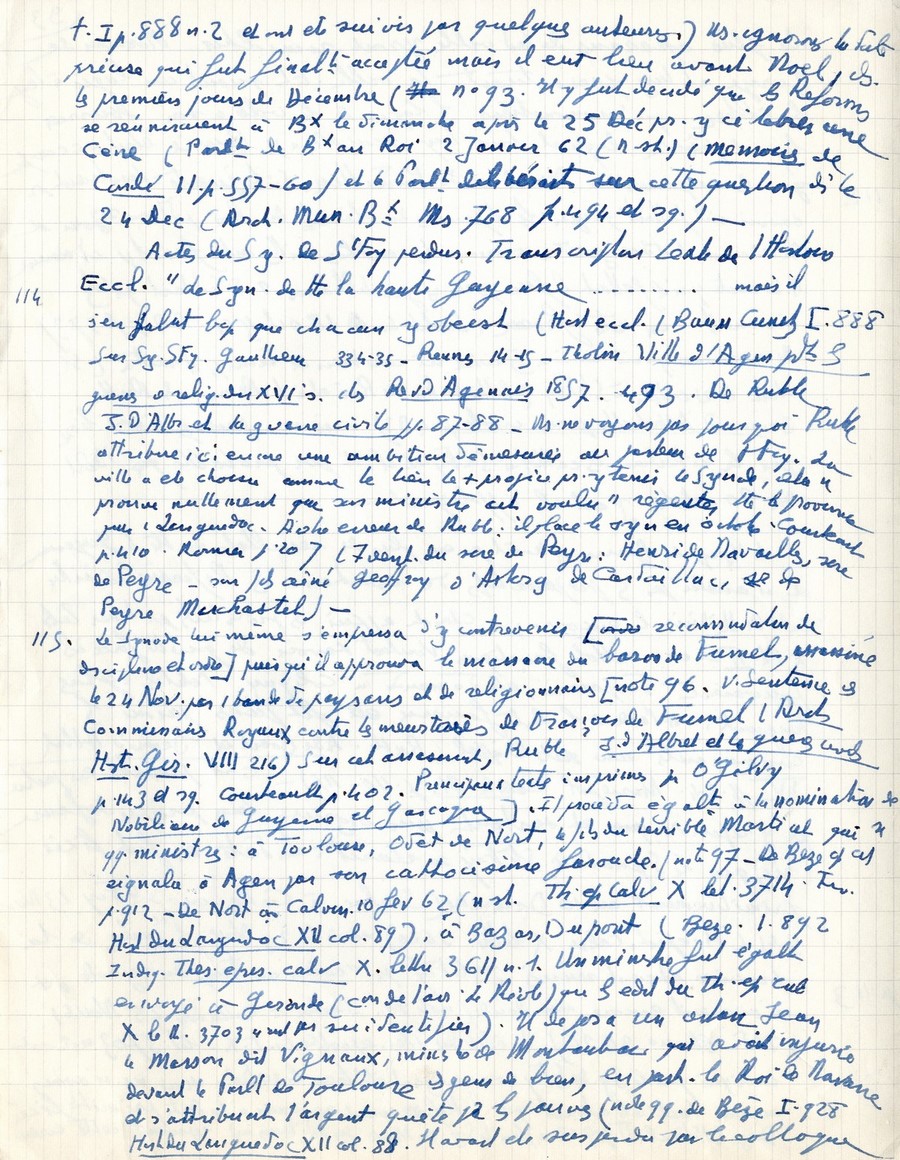 t. I p. 888 n. 2 et ont été suivis par quelques auteurs.) Ns. ignorons la date
précise qui fut finalt acceptée mais il eut lieu avant Noel, ds.
les premiers jours de Décembre ( n° 93. Il y fut décidé que les Reformés
se réuniraient à Bx le dimanche après le 25 Déc pr. y célébrer une
Cène ( Parlt de Bx au Roi 2 Janvier 62 (n. st.) ( memoires de
Condé II. p. 557-60) et le Parlt délibérait sur cette question dès le
24 Dec ( Arch. Mun. Bx Ms. 768 p. 494 et sq. ) —
Actes du Sy. de Ste Foy perdus. Transcription de l'Histoire
114 Eccl. " de Syn. de tte la haute Guyenne ......... mais il
s'en falut bcp que chacun y obeist ( Hist eccl. ( Baum Cunitz I. 888
Sur Sy. Ste Fy. Gaullieur 334-35 - 14-15 - Tholin Ville d'Agen pdt les
guerres de relig. du XVIe s. ds Rev d'Agenais 1887. 493. De Ruble
J. D'Albret et la guerre civile pp. 87-88 - Ns. ne voyons pas pourquoi Ruble
attribue ici encore une ambition démesurée au pasteur de Ste Foy. La
ville a été choisie comme le lieu le + propice pr. y tenir le Synode, cela n
prouve nullement que son ministre ait voulu " régenter tte la province
Languedoc. Autre erreur de Ruble : il place le syn en octob. Courteault
p. 410. Romier p. 207 ( du sire de Peyre : Henri de Navailles, sire
de Peyre - son fils ainé Geoffroy d'Astorg de Cardaillac, de
Peyre Marchastel ) —
115. Le Synode lui même s'empressa d'y contrevenir [ recommandation de
discipline et ordre ] puisqu'il approuva le massacre du baron de Fumel, assassiné
le 24 Nov. par 1 bande de paysans et de religionnaires [ note 96. V. Sentence des
Commissaires Royaux contre les meurtriers de François de Fumel ( Arch
Hist. Gir. VIII 216 ) Sur cet assassinat, Ruble J. d'Albret et la guerre civile
p. 143 et sq. Courteault p. 402. Principaux textes imprimés p. O'Gilvy
Nobiliaire de Guyenne et Gascogne ]. Il procéda égalt à la nomination de
qq ministres : à Toulouse, Odet de Nort, le fils du terrible Martial qui s
signala à Agen par son catholicisme farouche. ( note 97 - De Bèze
p. 912 - De Nort à Calvin. 10 fev 62 ( n. st. Th. ep Calv X let. 3714.
Hist du Languedoc XII col. 89 ), à Bazas, Dupont ( Bèze. I. 892
Indiq. Thes. epis. calv X. lettre 3611 n. 1. Un ministre fut égalt
envoyé à Gironde ( con de l'arr. de Réole ) que les edit du Th. ep calv
X let. 3703 n'ont pas su identifier ). Il déposa un certain Jean
le Masson dit Vignaux, ministre de Montauban qui avait injurié
devant le Parlt de Toulouse les gens de bien, en part. le Roi de Navarre
et s'attribuant l'argent quêté pr les pauvres ( nde 99. de Bèze I-928
Hist du Languedoc XII col. 88. Il avait été suspendu par le colloque